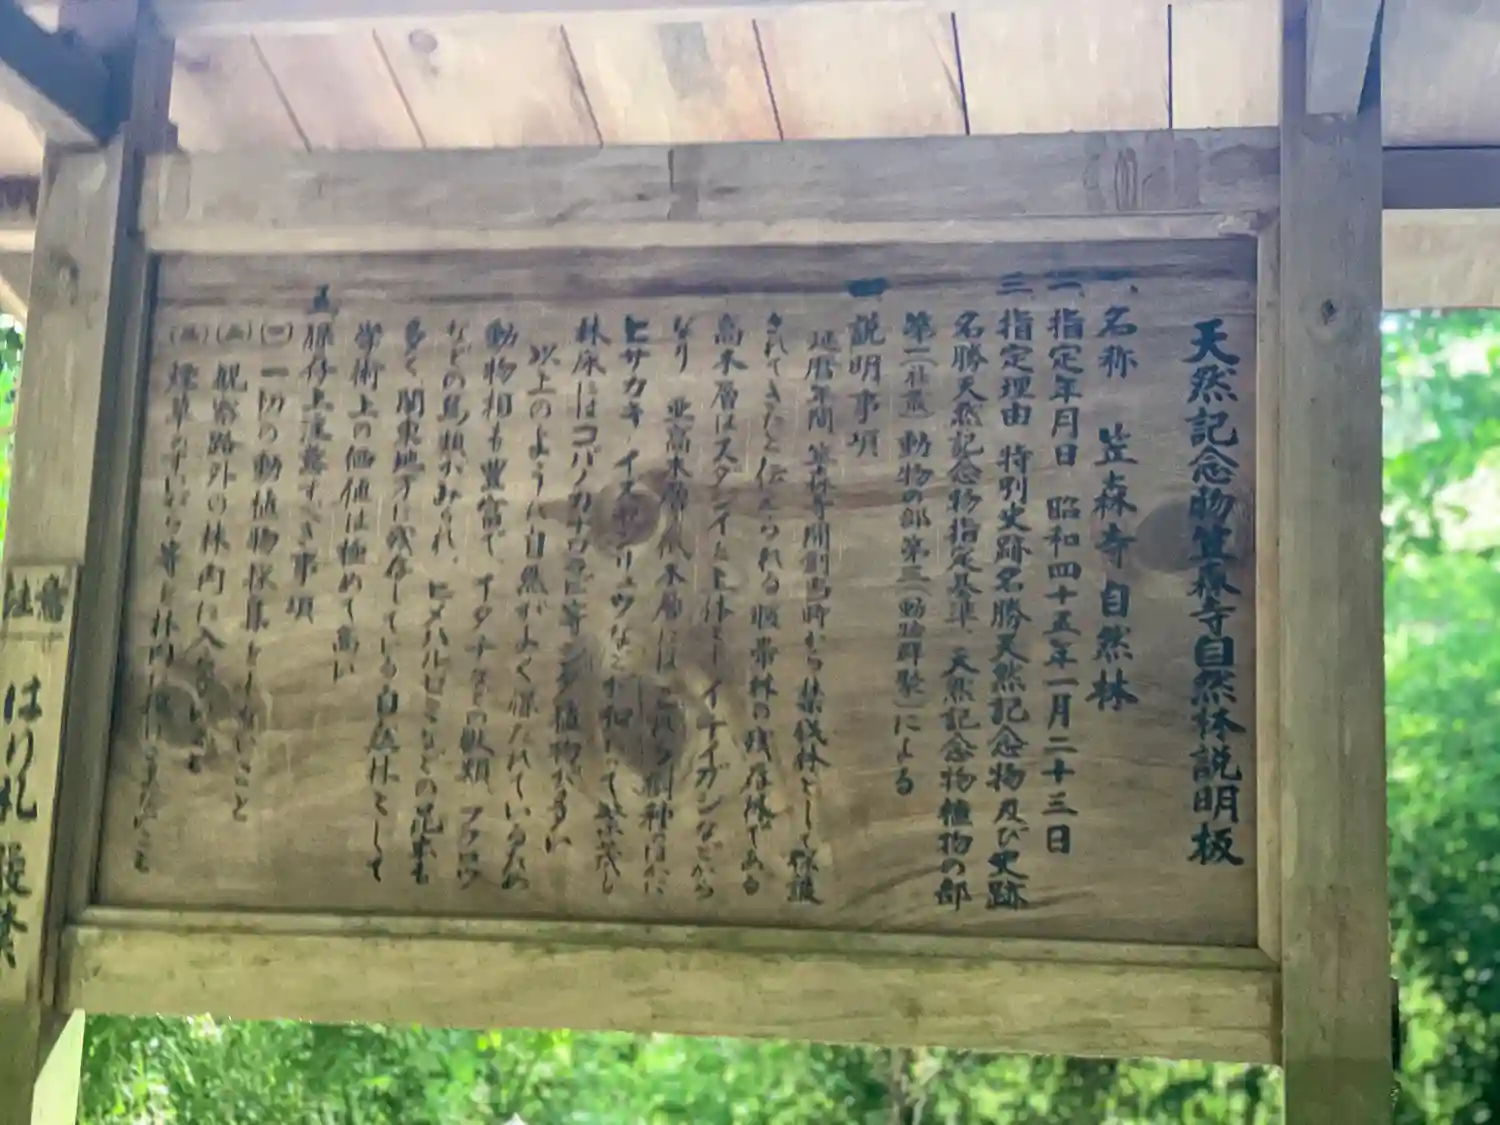 天然記念物笠森寺自然林説明板
一、名称 笠森寺自然林
二、指定年月日 昭和四十五年一月二十三日
三、指定理由 特別史跡名勝天然記念物及び史跡
名勝天然記念物指定基準、天然記念物植物の部
第二(社叢)動物の部第三(動物群聚)による
四、説明事項
延暦年間、笠森寺開創当時から禁伐林として保護
されてきたと伝えられる暖帯林の残存林である
高木層はスダジイを主体とし イチイガシなどから
なり 亜高木層 低木層には これら樹種のほかに
ヒサカキ、イヌ リュウなどが 混って繁茂し
林床にはコバノカナワラビ等シダ植物が多い
以上のように自然がよく保たれているため
動物相も豊富で、イタチなどの獣類、フクロウ
などの鳥類がみられ、ヒメハルゼミなどの昆虫も
多く、関東地方に残存している自然林として
学術上の価値は極めて高い
五、保存上注意すべき事項
(一) 一切の動植物採集をしないこと
(二) 観察路外の林内に入らないこと
煙草のすいがら等を林内に
はり札